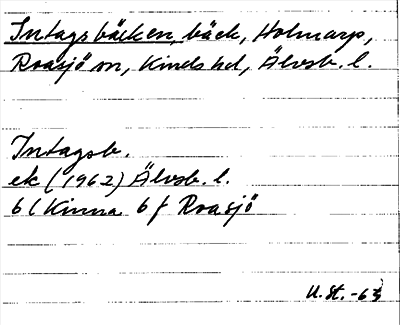 Intagsbäcken, bäck, Holmarp,
Roasjö sn, Kinds hd, Älvsb. l.
Intagsb.
ek (1962) Älvsb. l.
6 (Kinna 6 f Roasjö
U. St. -63